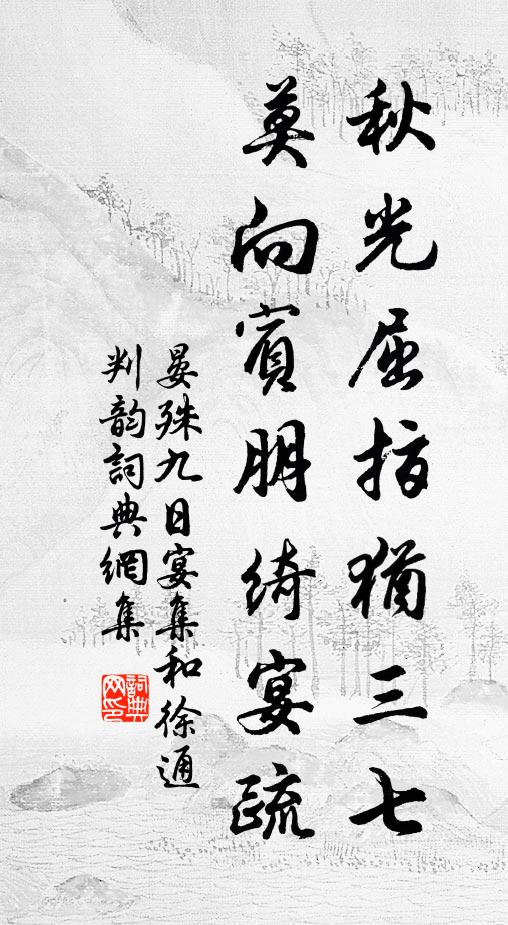 秋光屈指猶三七
莫向賓朋綺宴疏
晏殊九日宴集和徐通
判韵詞典網集
詞典网印